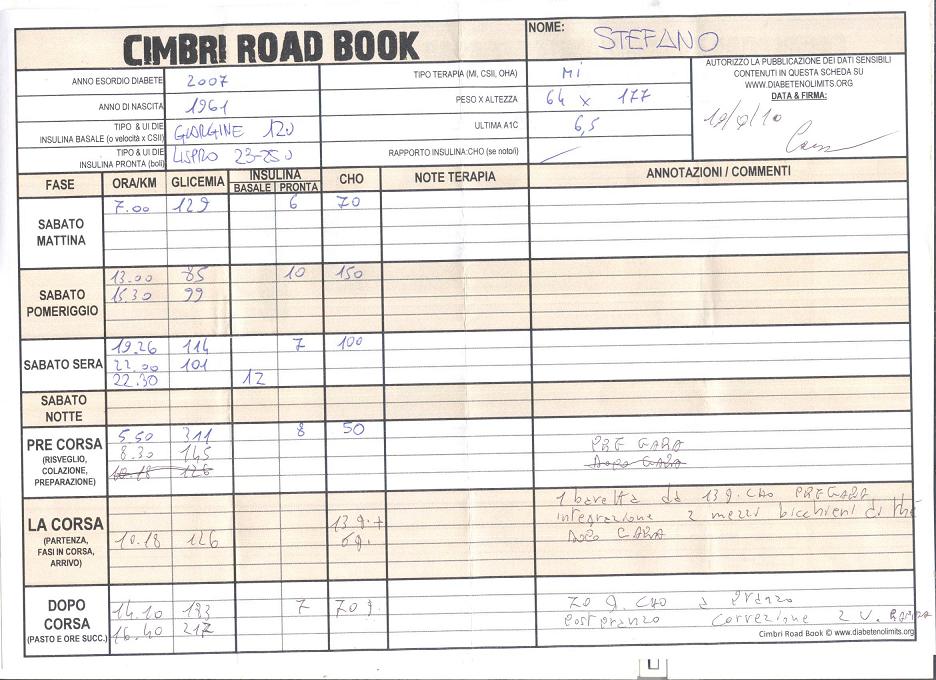 CIMBRI ROAD BOOK
NOME: STEFANO
ANNO ESORDIO DIABETE 2007
TIPO TERAPIA (MI, CSII, OHA) MI
AUTORIZZO LA PUBBLICAZIONE DEI DATI SENSIBILI
CONTENUTI IN QUESTA SCHEDA SU
WWW.DIABETENOLIMITS.ORG
DATA & FIRMA:
ANNO DI NASCITA 1961
PESO X ALTEZZA 64 x 177
TIPO & UI DIE
INSULINA BASALE (o velocità x CSII) GLARGINE 12U
ULTIMA A1C 6,5
TIPO & UI DIE
INSULINA PRONTA (boli) LISPRO 23-25U
RAPPORTO INSULINA:CHO (se noto/i)
FASE ORA/KM GLICEMIA INSULINA CHO NOTE TERAPIA ANNOTAZIONI / COMMENTI
BASALE PRONTA
SABATO
MATTINA
7.00 129 6 70
SABATO
POMERIGGIO
13.00 85 10 150
15.30 99
SABATO SERA
19.26 114 7 100
22.00 101
22.30 12
SABATO
NOTTE
PRE CORSA
(RISVEGLIO,
COLAZIONE,
PREPARAZIONE)
5.50 311 8 50
8.30 145 PRE GARA
10.18 126 DOPO GARA
LA CORSA
(PARTENZA,
FASI IN CORSA,
ARRIVO)
1 baretta da 13 g. CHO PREGARA
13 g. + integrazione 2 mezzi bicchieri di thé
10.18 126 6g. DOPO GARA
DOPO
CORSA
(PASTO E ORE SUCC.)
14.10 193 7 70 g. 70 g. CHO a pranzo
16.40 217 Post pranzo Correzione 2 U. RAPIDA
Cimbri Road Book © www.diabetenolimits.org